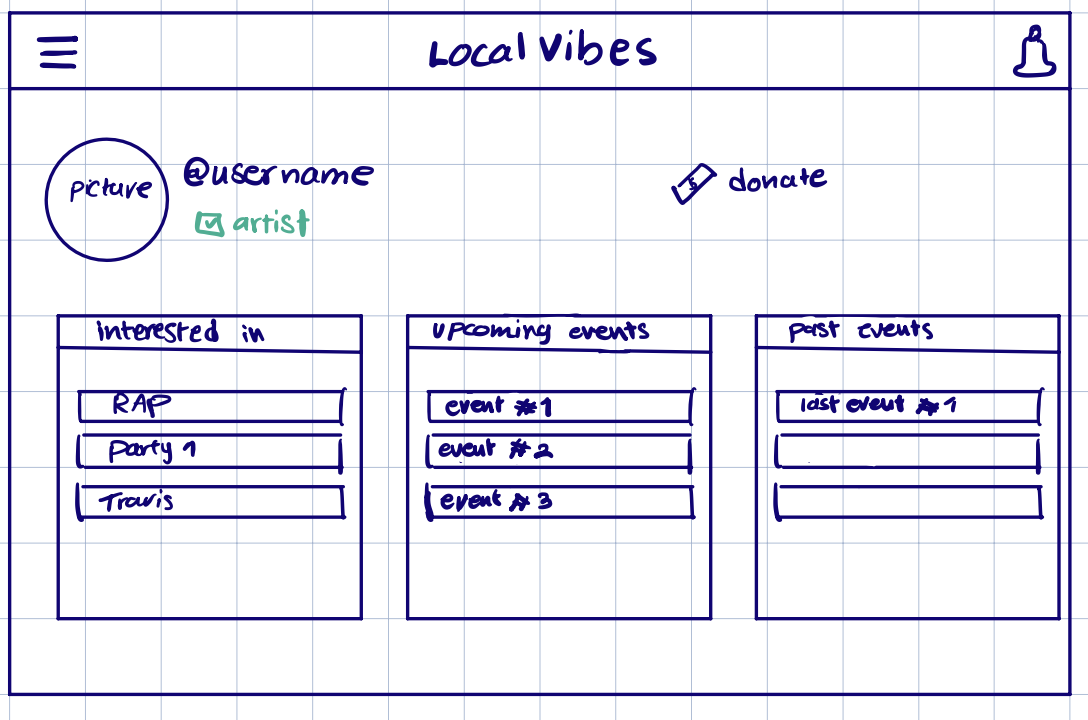 Local Vibes
picture
@username
artist
$ donate
interested in
RAP
Party 1
Travis
upcoming events
event #1
event #2
event #3
past events
last event #1